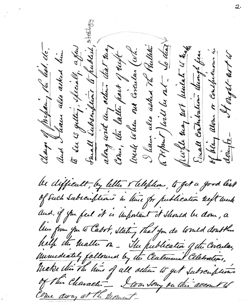 2
strategy
charge of preparing the list etc.
and I have also asked him
to see to getting, specially, a few
small subscriptions to publish,
along with any others that may
come, the latter part of next
week when our circular (wh.
I have also asked the
to print) will be out. So that
people may not hesitate to make
small contributions through fear
of being alone or conspicuous in
It ought not to
be difficult, by letter & telephone, to get a good list
of such subscriptions in time for publication next week
and, if you feel it is important it should be done, a
line from you to Cabot, stating that you do would doubtless
help the matter on. The publication of the circular,
immediately followed by the Centennial Celebration,
makes this the time of all others to get subscriptions
of this character. I am sorry on this account to
come away at the moment.